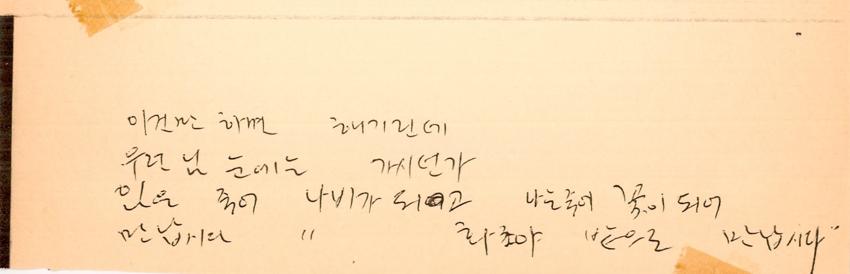 이건만 하면 해기린데
우련 님 눈에는 가시던가
임은 죽어 나비가 되고 나는 죽어 꽃이 되어
만납시다 〃 화초야 밭으로 만납시다"